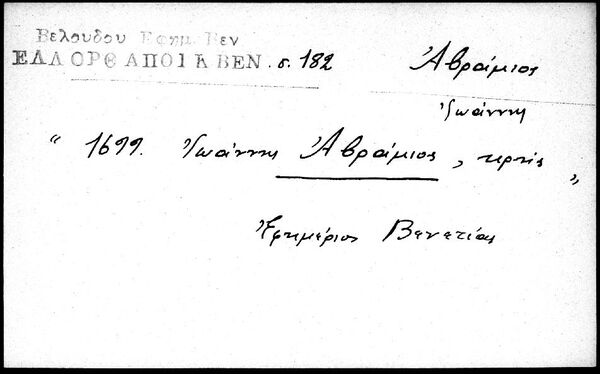 Βελουδου Εφημ. Βεν
ΕΛΛ ΟΡΘ ΑΠΟΙΚ ΒΕΝ. σ. 182
Ἀβράμιος
Ἰωάννης
“ 1699. Ἰωάννης Ἀβράμιος, „
Ἐφημέριος Βενετίας